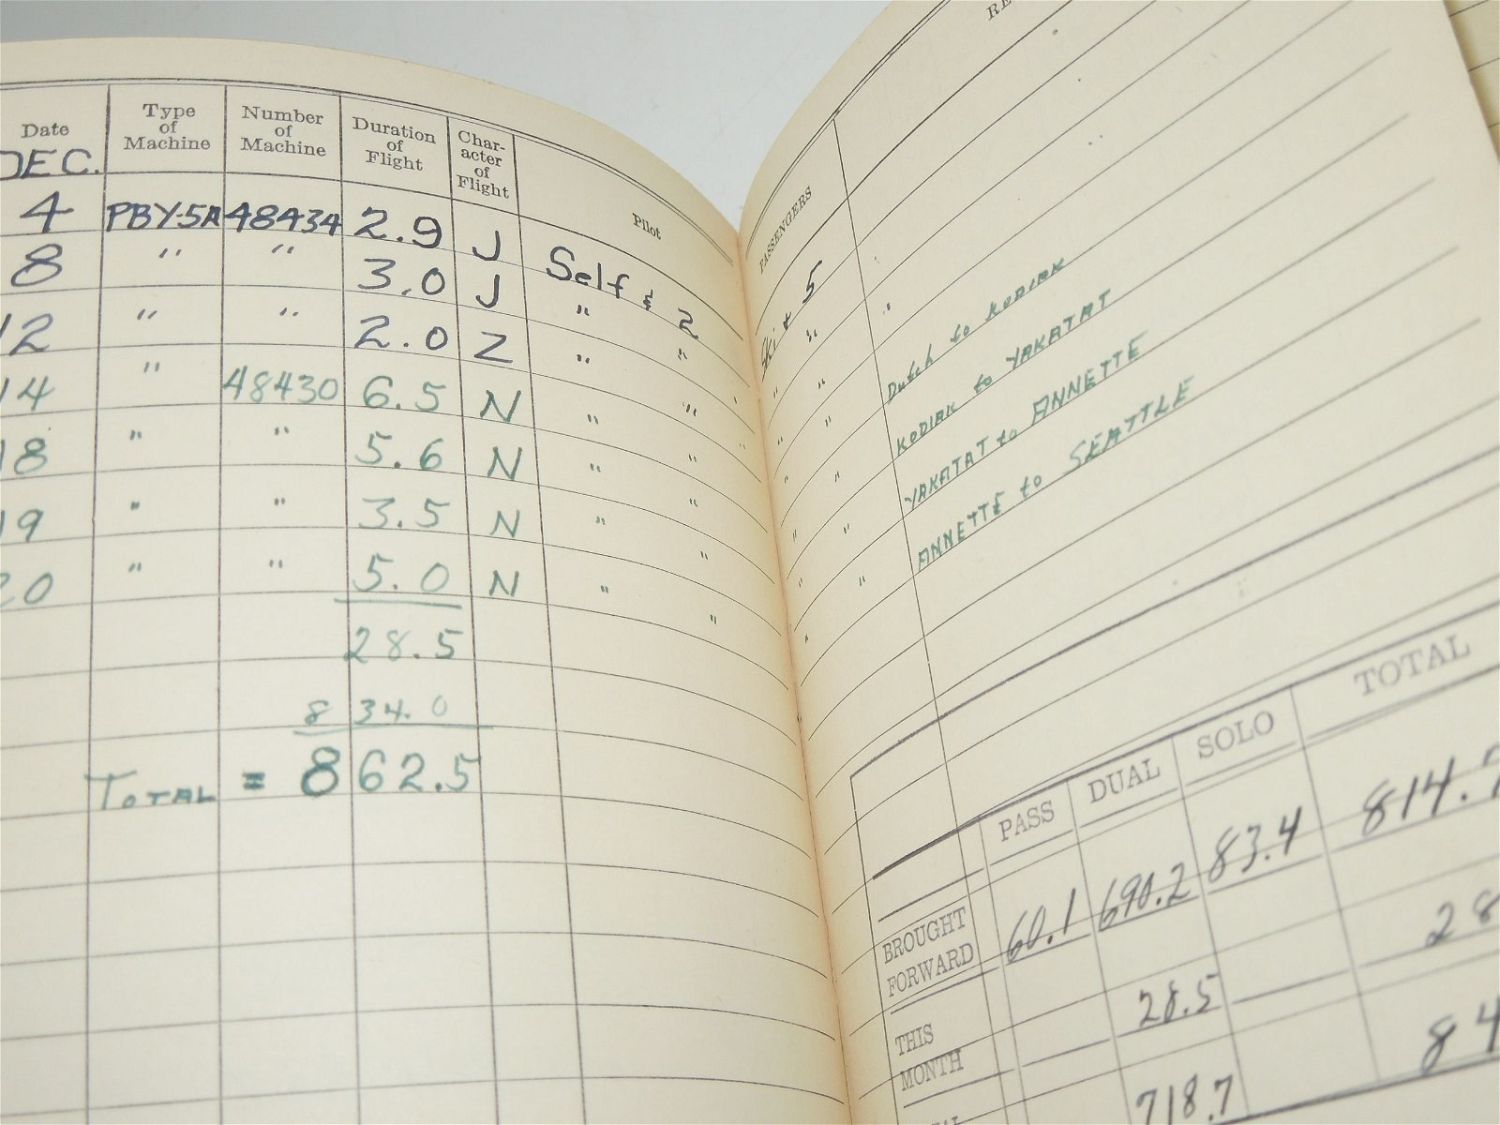 Date Type of Machine Number of Machine Duration of Flight Char-acter of Flight Pilot
DEC.
4 PBY-5A 48434 2.9 J Self & 2
8 " " 3.0 J " "
12 " " 2.0 Z " "
14 " 48430 6.5 N " "
18 " " 5.6 N " "
19 " " 3.5 N " "
20 " " 5.0 N " "
28.5
834.0
TOTAL = 862.5
PASSENGERS RE
5
" "
" "
" " Dutch to KODIAK
" " KODIAK to YAKATAT
" " YAKATAT to ANNETTE
" " ANNETTE to SEATTLE
PASS DUAL SOLO TOTAL
BROUGHT FORWARD 60.1 690.2 83.4 814.7
THIS MONTH 28.5 28
718.7 84